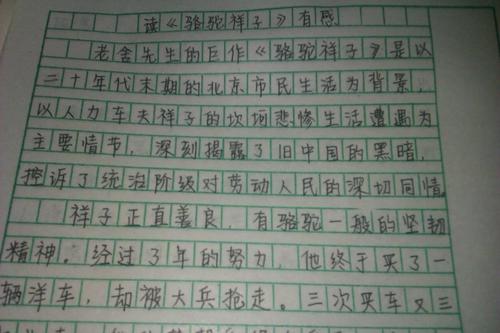 读《骆驼祥子》有感
老舍先生的巨作《骆驼祥子》是以
二十年代末期的北京市民生活为背景，
以人力车夫祥子的坎坷悲惨生活遭遇为
主要情节，深刻揭露了旧中国的黑暗，
控诉了统治阶级对劳动人民的深切同情
祥子正直善良，有骆驼一般的坚韧
精神。经过了年的努力，他终于买了一
辆洋车，却被大兵抢走。三次买车又三